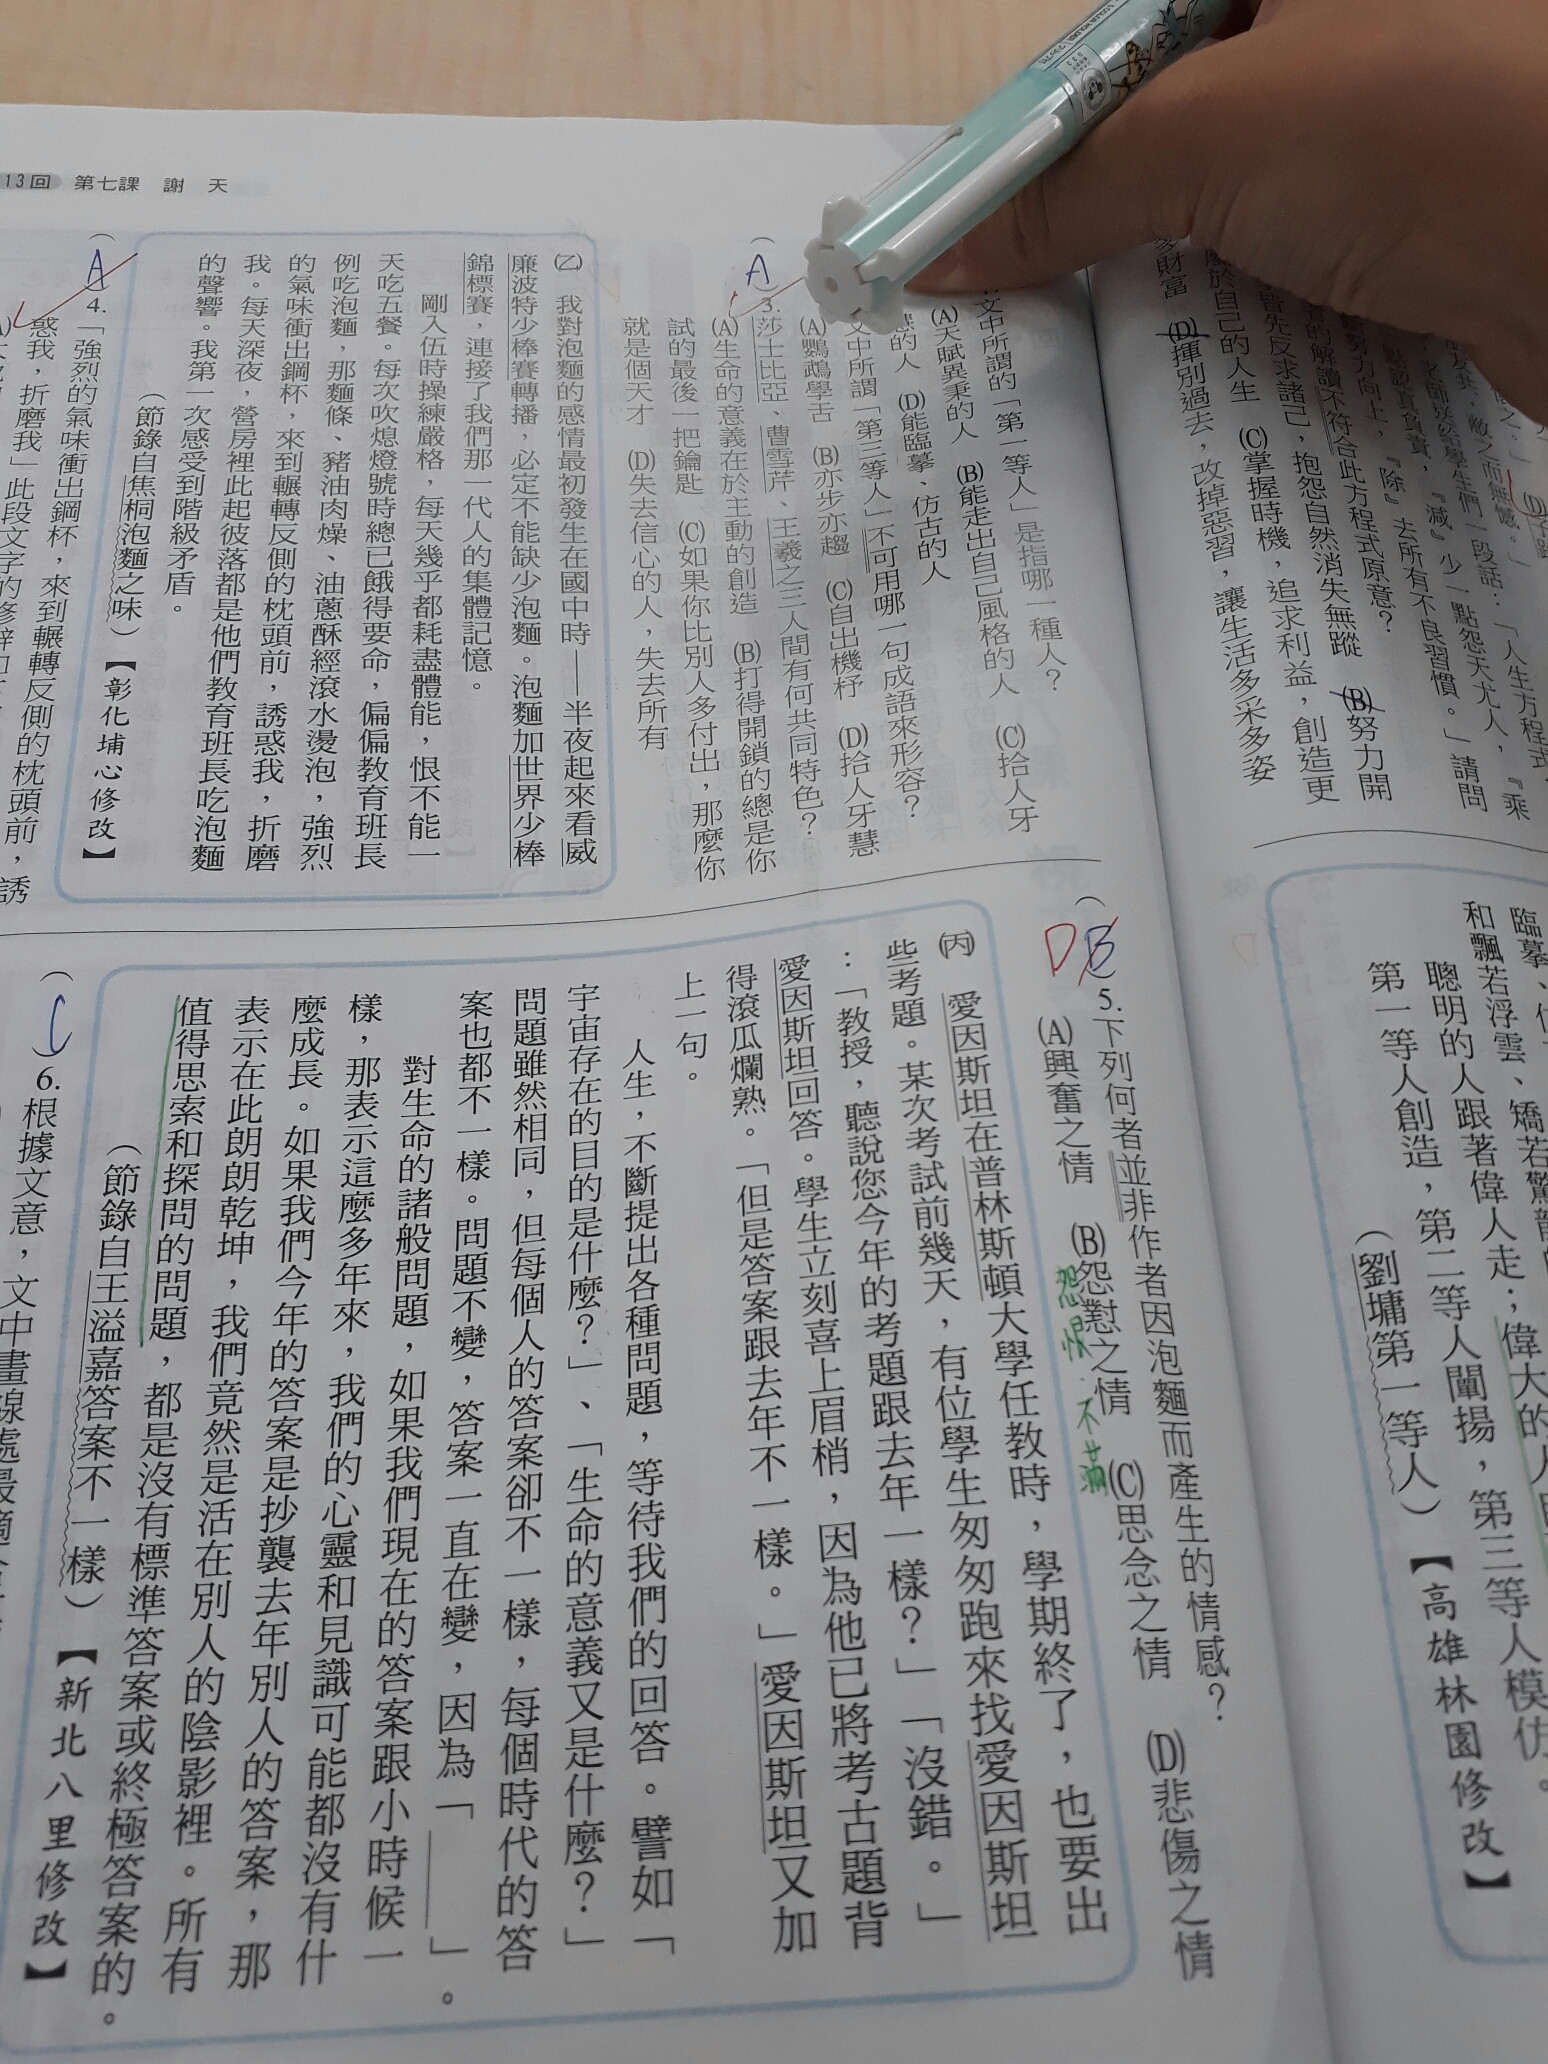 13回 第七課 謝天
多財富 (D)揮別過去，改掉惡習，讓生活多采多姿
於自己的人生 (C)掌握時機，追求利益，創造更
皆先反求諸己，抱怨自然消失無蹤 (B)努力開
的解讀不符合此方程式原意？
努力向上，『除』去所有不良習慣。」請問
文中所謂的「第一等人」是指哪一種人？
(A)天賦異秉的人 (B)能走出自己風格的人 (C)拾人牙
慧的人 (D)能臨摹、仿古的人
文中所謂「第三等人」不可用哪一句成語來形容？
(A)鸚鵡學舌 (B)亦步亦趨 (C)自出機杼 (D)拾人牙慧
A
3.莎士比亞、曹雪芹、王羲之三人間有何共同特色？
(A)生命的意義在於主動的創造 (B)打得開鎖的總是你
試的最後一把鑰匙 (C)如果你比別人多付出，那麼你
就是個天才 (D)失去信心的人，失去所有
(乙) 我對泡麵的感情最初發生在國中時——半夜起來看威
廉波特少棒賽轉播，必定不能缺少泡麵。泡麵加世界少棒
錦標賽，連接了我們那一代人的集體記憶。
剛入伍時操練嚴格，每天幾乎都耗盡體能，恨不能一
天吃五餐。每次吹熄燈號時總已餓得要命，偏偏教育班長
例吃泡麵，那麵條、豬油肉燥、油蔥酥經滾水燙泡，強烈
的氣味衝出鋼杯，來到輾轉反側的枕頭前，誘惑我，折磨
我。每天深夜，營房裡此起彼落都是他們教育班長吃泡麵
的聲響。我第一次感受到階級矛盾。
（節錄自焦桐泡麵之味）【彰化埔心修改】
A
4.「強烈的氣味衝出鋼杯，來到輾轉反側的枕頭前，誘
惑我，折磨我」此段文字的修辭
臨摹、
和飄若浮雲、矯若驚龍
聰明的人跟著偉人走；偉大的人
第一等人創造，第二等人闡揚，第三等人模仿。
（劉墉第一等人）【高雄林園修改】
D B
5.下列何者並非作者因泡麵而產生的情感？
(A)興奮之情 (B)怨懟之情 (C)思念之情 (D)悲傷之情
怨恨、不滿
(丙) 愛因斯坦在普林斯頓大學任教時，學期終了，也要出
些考題。某次考試前幾天，有位學生匆匆跑來找愛因斯坦
：「教授，聽說您今年的考題跟去年一樣？」「沒錯。」
愛因斯坦回答。學生立刻喜上眉梢，因為他已將考古題背
得滾瓜爛熟。「但是答案跟去年不一樣。」愛因斯坦又加
上一句。
人生，不斷提出各種問題，等待我們的回答。譬如「
宇宙存在的目的是什麼？」、「生命的意義又是什麼？」
問題雖然相同，但每個人的答案卻不一樣，每個時代的答
案也都不一樣。問題不變，答案一直在變，因為「＿＿＿」。
對生命的諸般問題，如果我們現在的答案跟小時候一
樣，那表示這麼多年來，我們的心靈和見識可能都沒有什
麼成長。如果我們今年的答案是抄襲去年別人的答案，那
表示在此朗朗乾坤，我們竟然是活在別人的陰影裡。所有
值得思索和探問的問題，都是沒有標準答案或終極答案的。
（節錄自王溢嘉答案不一樣）【新北八里修改】
C
6.根據文意，文中畫線處最適合